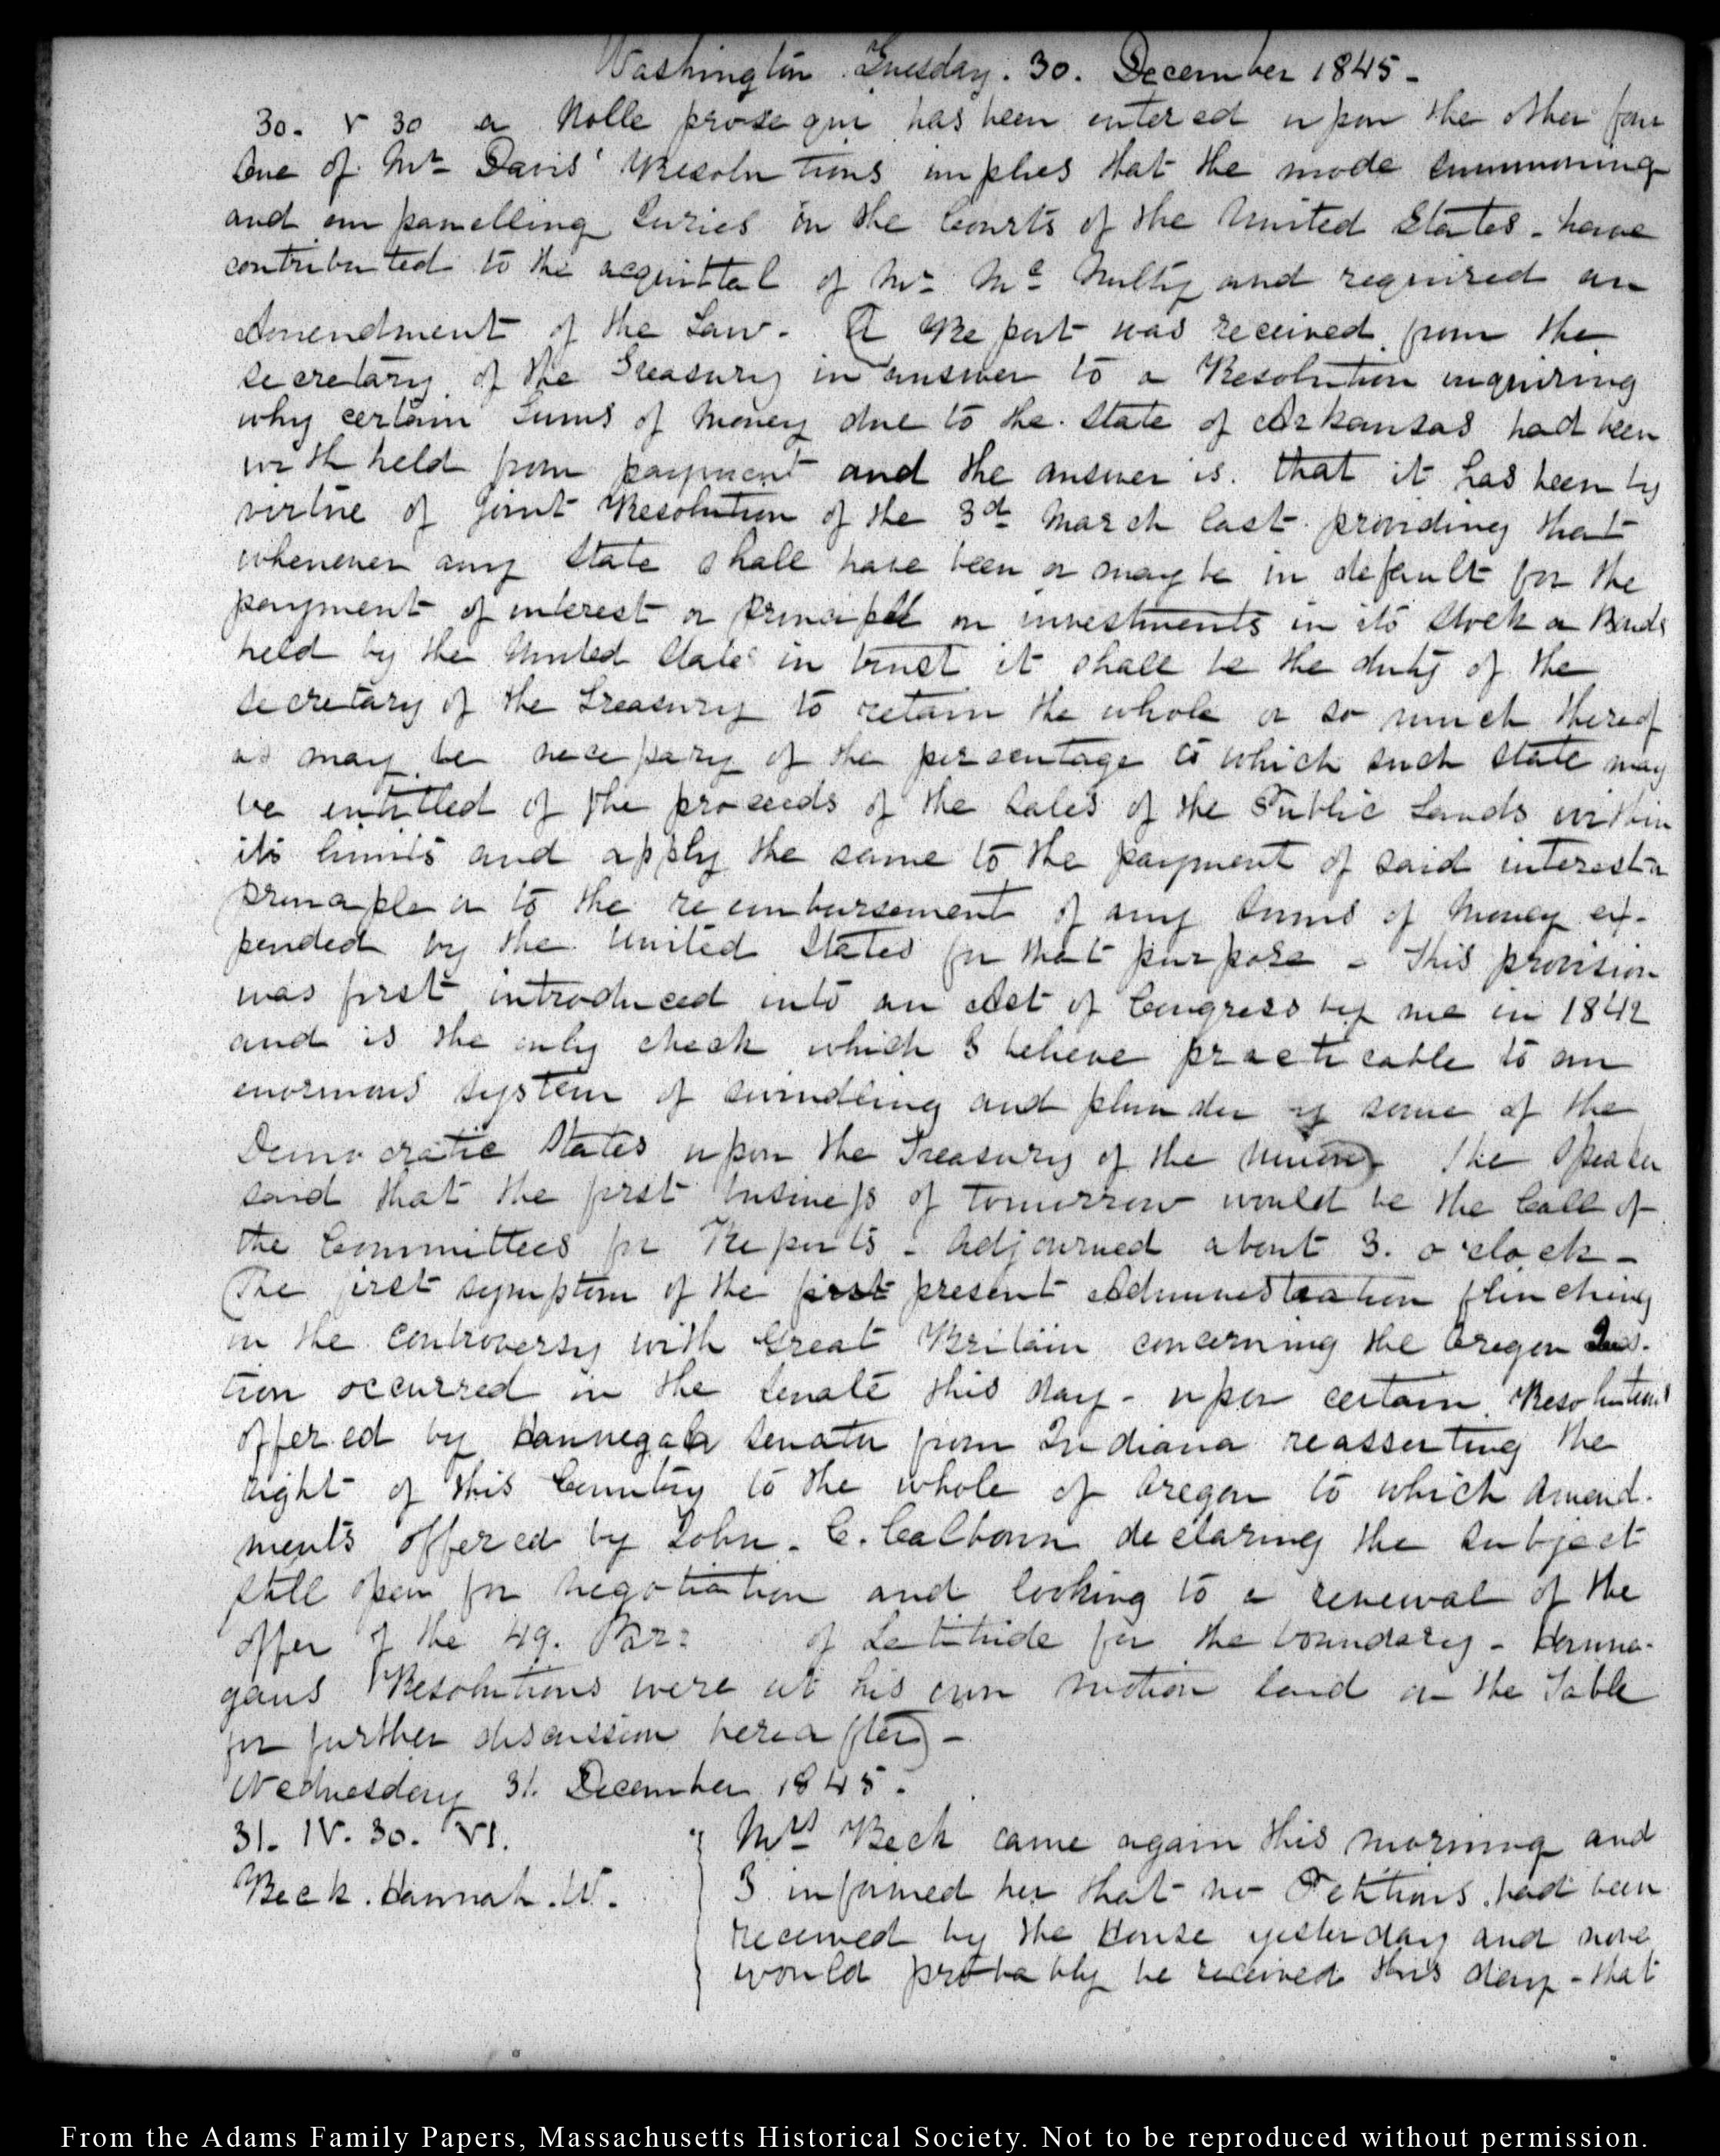 Washington Tuesday. 30. December 1845 -
30. V 30 a Nolle prosequi has been entered upon the other four
One of Mr Davis' Resolutions implies that the mode summoning
and empanelling Juries in the Courts of the United States - have
contributed to the acquittal of Mr Mc Nulty and required an
Amendment of the Law. A Report was received from the
secretary of the Treasury in answer to a Resolution inquiring
why certain sums of money due to the State of Arkansas had been
withheld from payment and the answer is. that it has been by
virtue of joint Resolution of the 3d March last providing that
whenever any State shall have been or may be in default for the
payment of interest or principal on investments in its Stock or Bonds
held by the United States in trust it shall be the duty of the
secretary of the Treasury to retain the whole or so much thereof
as may be necessary of the percentage to which such state may
be entitled of the proceeds of the sales of the Public Lands within
its limits and apply the same to the payment of said interest or
principle or to the reimbursement of any sums of money ex-
pended by the United States for that purpose - This provision
was first introduced into an Act of Congress by me in 1842
and is the only check which I believe practicable to an
enormous system of swindling and plunder of some of the
Democratic States upon the Treasury of the Union) The Speaker
said that the first business of tomorrow would be the Call of
the Committees for Reports - Adjourned about 3. o'clock -
(The first symptom of the first present Administration flinching
in the controversy with Great Britain concerning the Oregon Ques-
tion occurred in the Senate this day - upon certain Resolutions
offered by Hannegan Senator from Indiana reasserting the
right of this Country to the whole of Oregon to which Amend-
ments offered by John. C. Calhoun declaring the subject
still open for negotiation and looking to a renewal of the
offer of the 49. Par: of Latitude for the boundary - Hanne-
gans Resolutions were at his own motion laid on the Table
for further discussion hereafter) -
Wednesday 31. December 1845.
31. IV. 30. VI.
Beck. Hannah. W.
Mrs Beck came again this morning and
I informed her that no Petitions had been
received by the House yesterday and none
would probably be received this day - that
From the Adams Family Papers, Massachusetts Historical Society. Not to be reproduced without permission.